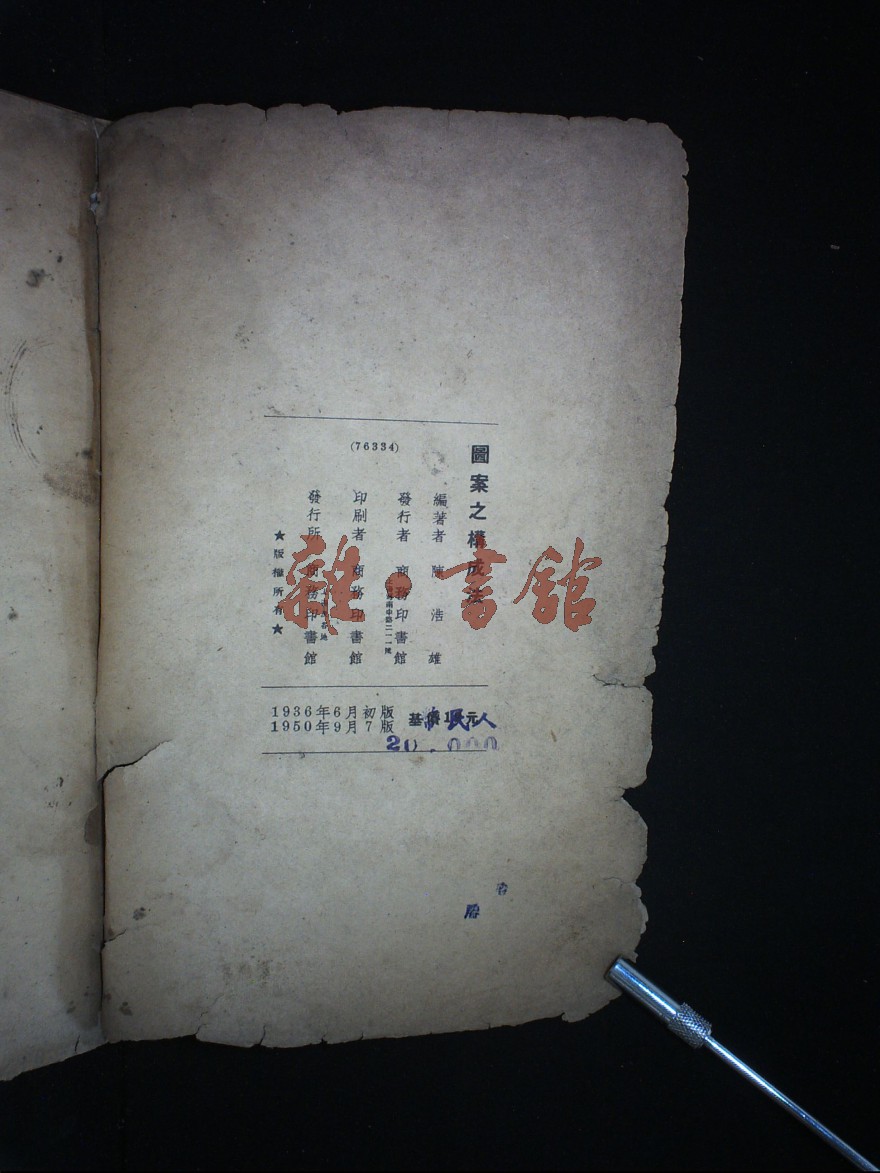 (76334)
圖案之構成法
編著者 陳浩雄
發行者 商務印書館
印刷者 商務印書館
發行所 商務印書館
★版權所有★
1936年6月初版
1950年9月7版
基價 元
人民
20.000
雜·書館